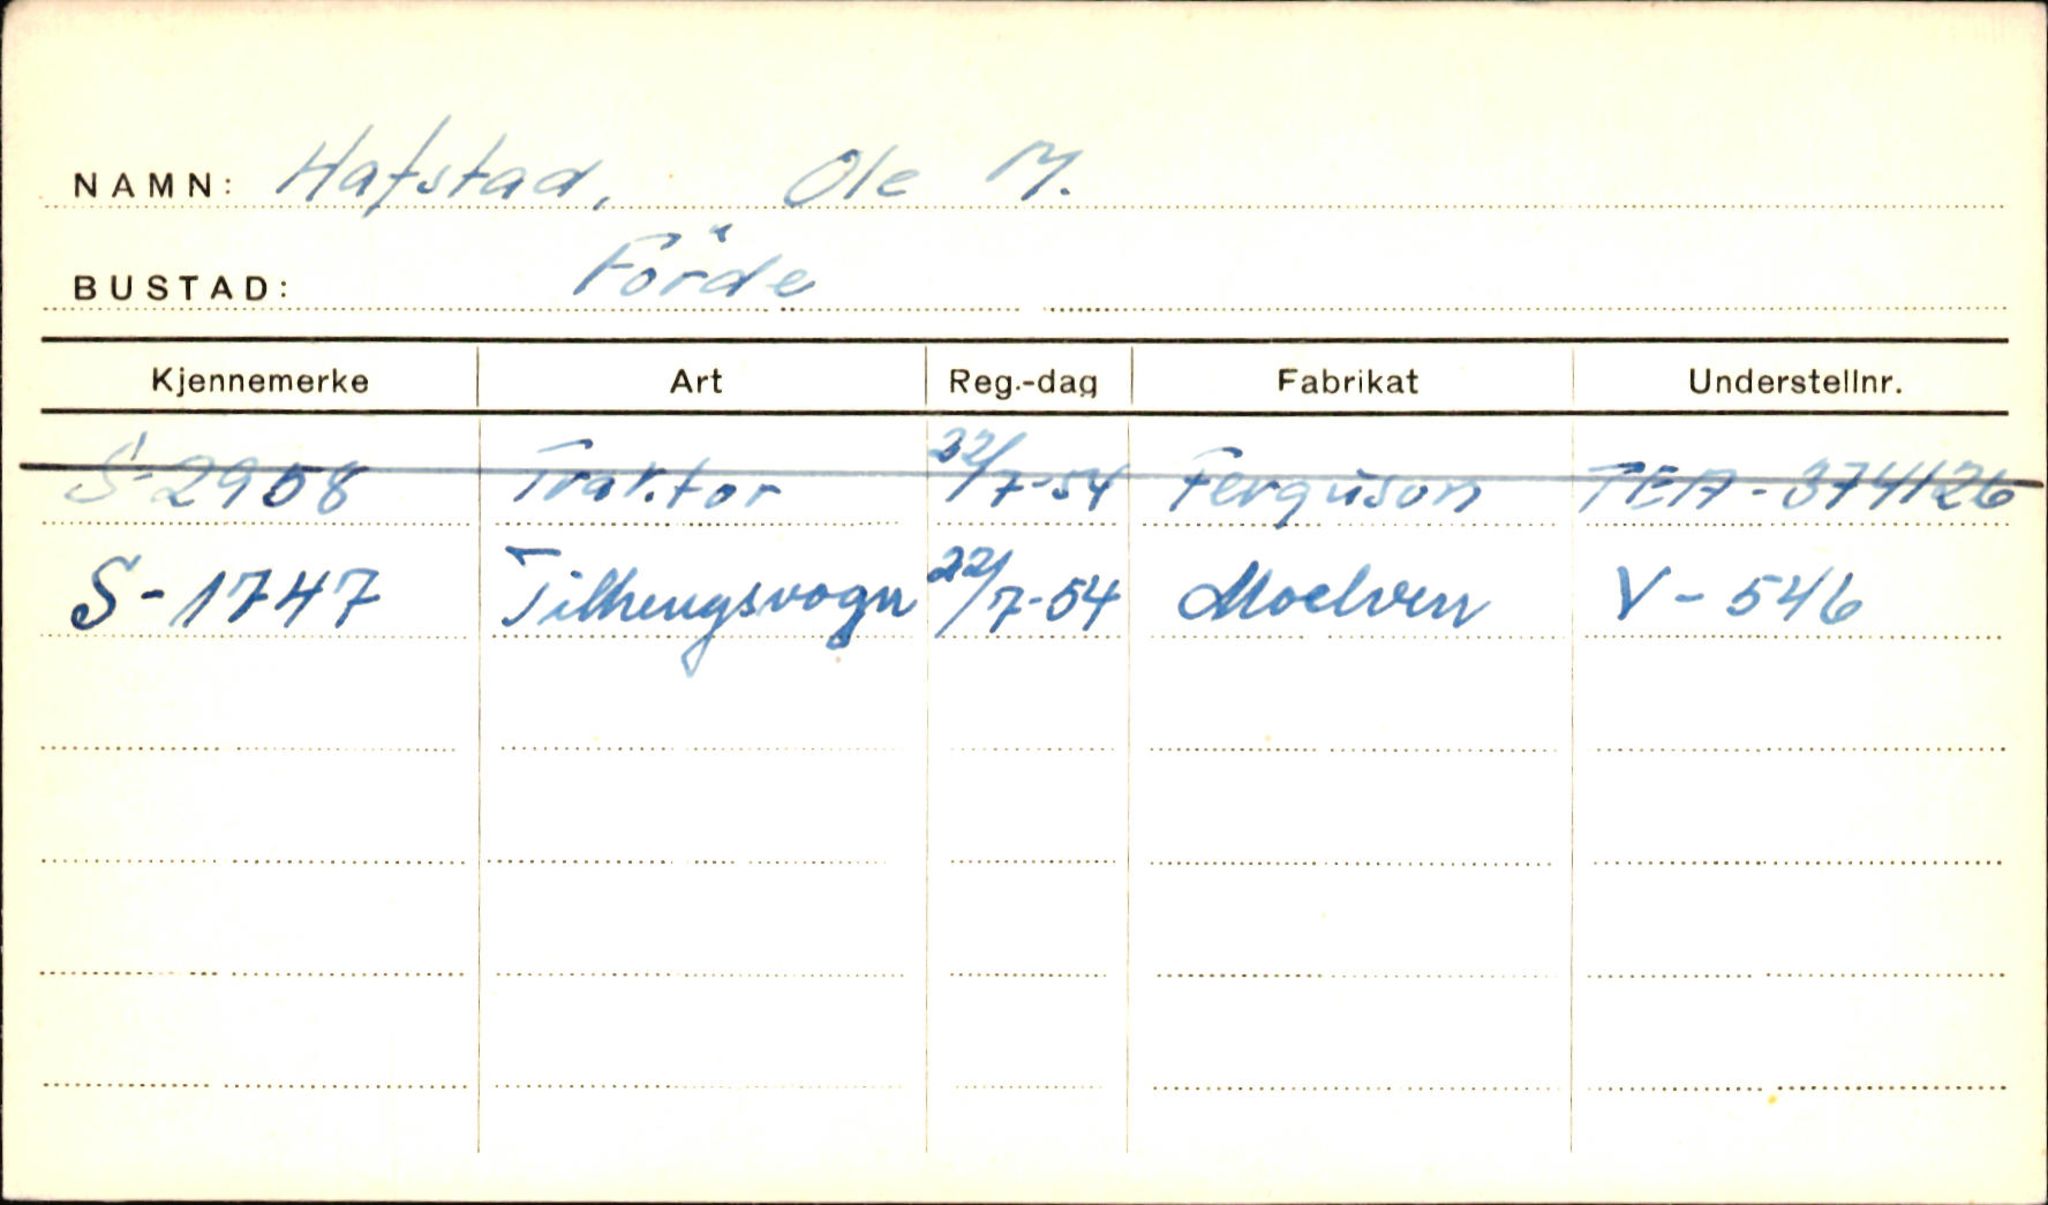 NAMN: Hafstad, Ole M.
BUSTAD: Förde
Kjennemerke Art Reg.-dag Fabrikat Understellnr.
S-2958 Traktor 22/7-54 Ferguson TEA-374126
S-1747 Tilhengsvogn 22/7-54 Moelven V-546